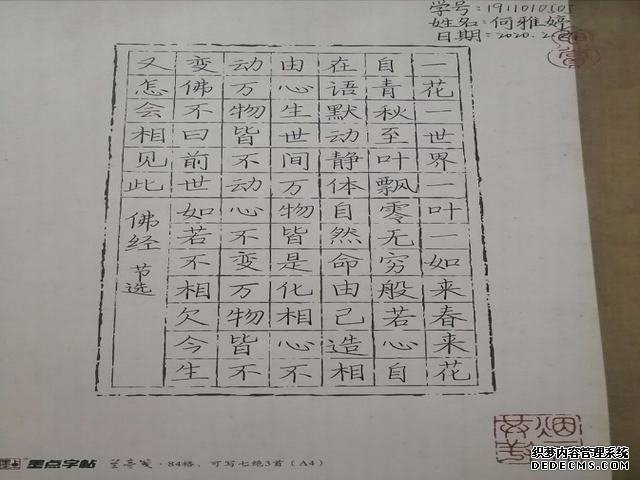 学号:
姓名:何雅婷
日期:2020.2
一花一世界一叶一如来春来花
自青秋至叶飘零无穷般若心自
在语默动静体自然命由己造相
由心生世间万物皆是化相心不
动万物皆不动心不变万物皆不
变佛不曰前世如若不相欠今生
又怎会相见此
佛经 节选
墨点字帖 ·84格，可写七绝3首（A4）
织梦内容管理系统
DEDECMS.COM